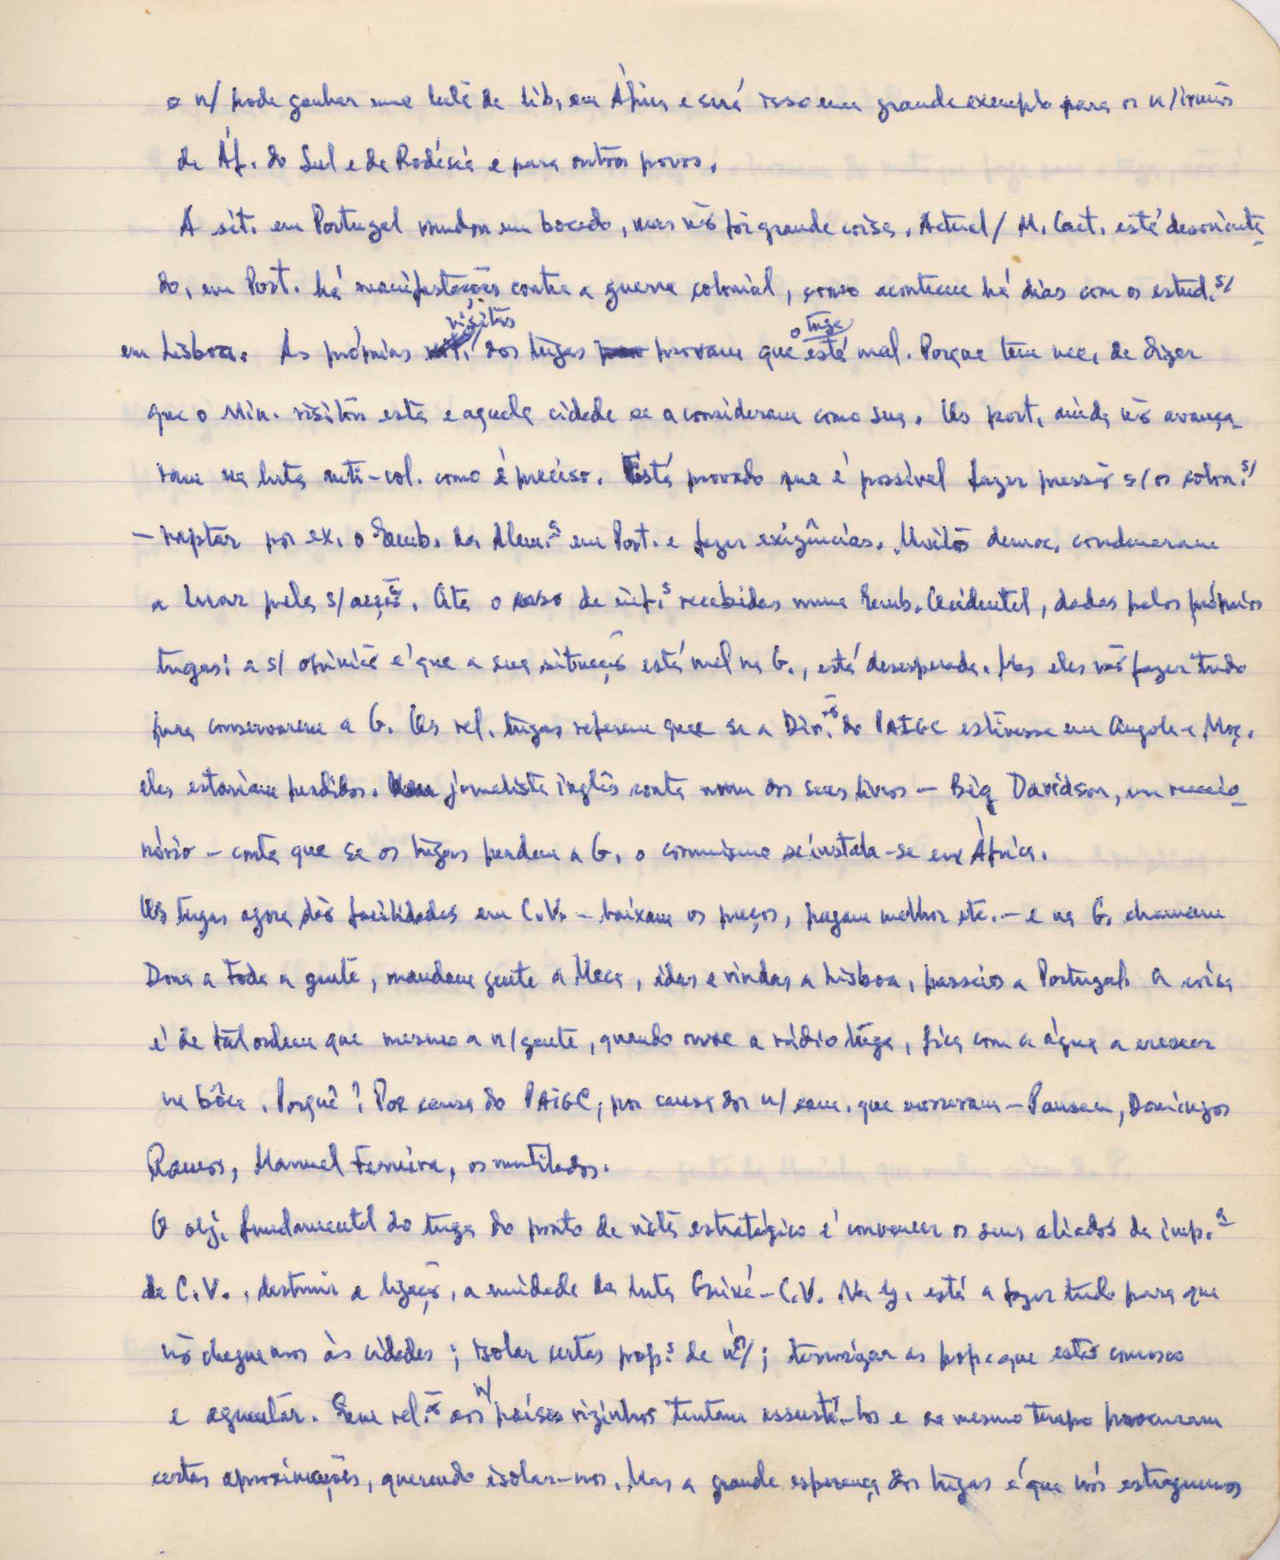 e n/ pode ganhar uma luta de lib. em África e será isso um grande exemplo para os n/ irmãos
da Áf. do Sul e da Rodésia e para outros povos.
A sit. em Portugal mudou um bocado, mas não foi grande coisa. Actual/ M. Caet. está desorienta-
do, em Port. há manifestações contra a guerra colonial, como aconteceu há dias com os estud.s/
em Lisboa. As próprias visitas dos tugas provam que o tuga está mal. Porque tem nec. de dizer
que o Min. visitou esta e aquela cidade se a consideram como sua. Os port. ainda não avança-
ram na luta anti-col. como é preciso. Está provado que é possível fazer pressão s/ os colon.s/
— raptar por ex. o Emb. da Alem.ª em Port. e fazer exigências. Muitos democ. condenaram
a Luar pela s/ acção. Cita o caso de inf.s recebidas numa Emb. Ocidental, dadas pelos próprios
tugas: a s/ opinião é que a sua situação está mal na G., está desesperada. Mas eles vão fazer tudo
para conservarem a G. Os rel. tugas referem que se a Dir.ão do PAIGC estivesse em Angola e Moç.
eles estariam perdidos. Um jornalista inglês conta num dos seus livros — Big Davidson, um reaccio-
nário — conta que se os tugas perdem a G. o comunismo se instala-se em África.
Os tugas agora dão facilidades em C.V. — baixam os preços, pagam melhor etc. — e na G. chamam
Dona a toda a gente, mandam gente a Meca, idas e vindas a Lisboa, passeios a Portugal. A coisa
é de tal ordem que mesmo a n/ gente, quando ouve a rádio tuga, fica com a água a crescer
na bôca. Porquê? Por causa do PAIGC, por causa dos n/ cam. que morreram — Pansau, Domingos
Ramos, Manuel Ferreira, os mutilados.
O obj. fundamental do tuga do ponto de vista estratégico é convencer os seus aliados da imp.ª
de C.V., destruir a ligação, a unidade da luta Guiné-C.V. Na G. está a fazer tudo para que
não cheguemos às cidades; isolar certas pop.s de nós/; terrorizar as pop. que estão connosco
e aguentar. Em rel.ão aos n/ países vizinhos tentam assustá-los e ao mesmo tempo procuram
certas aproximações, querendo isolar-nos. Mas a grande esperança dos tugas é que nós estraguemos